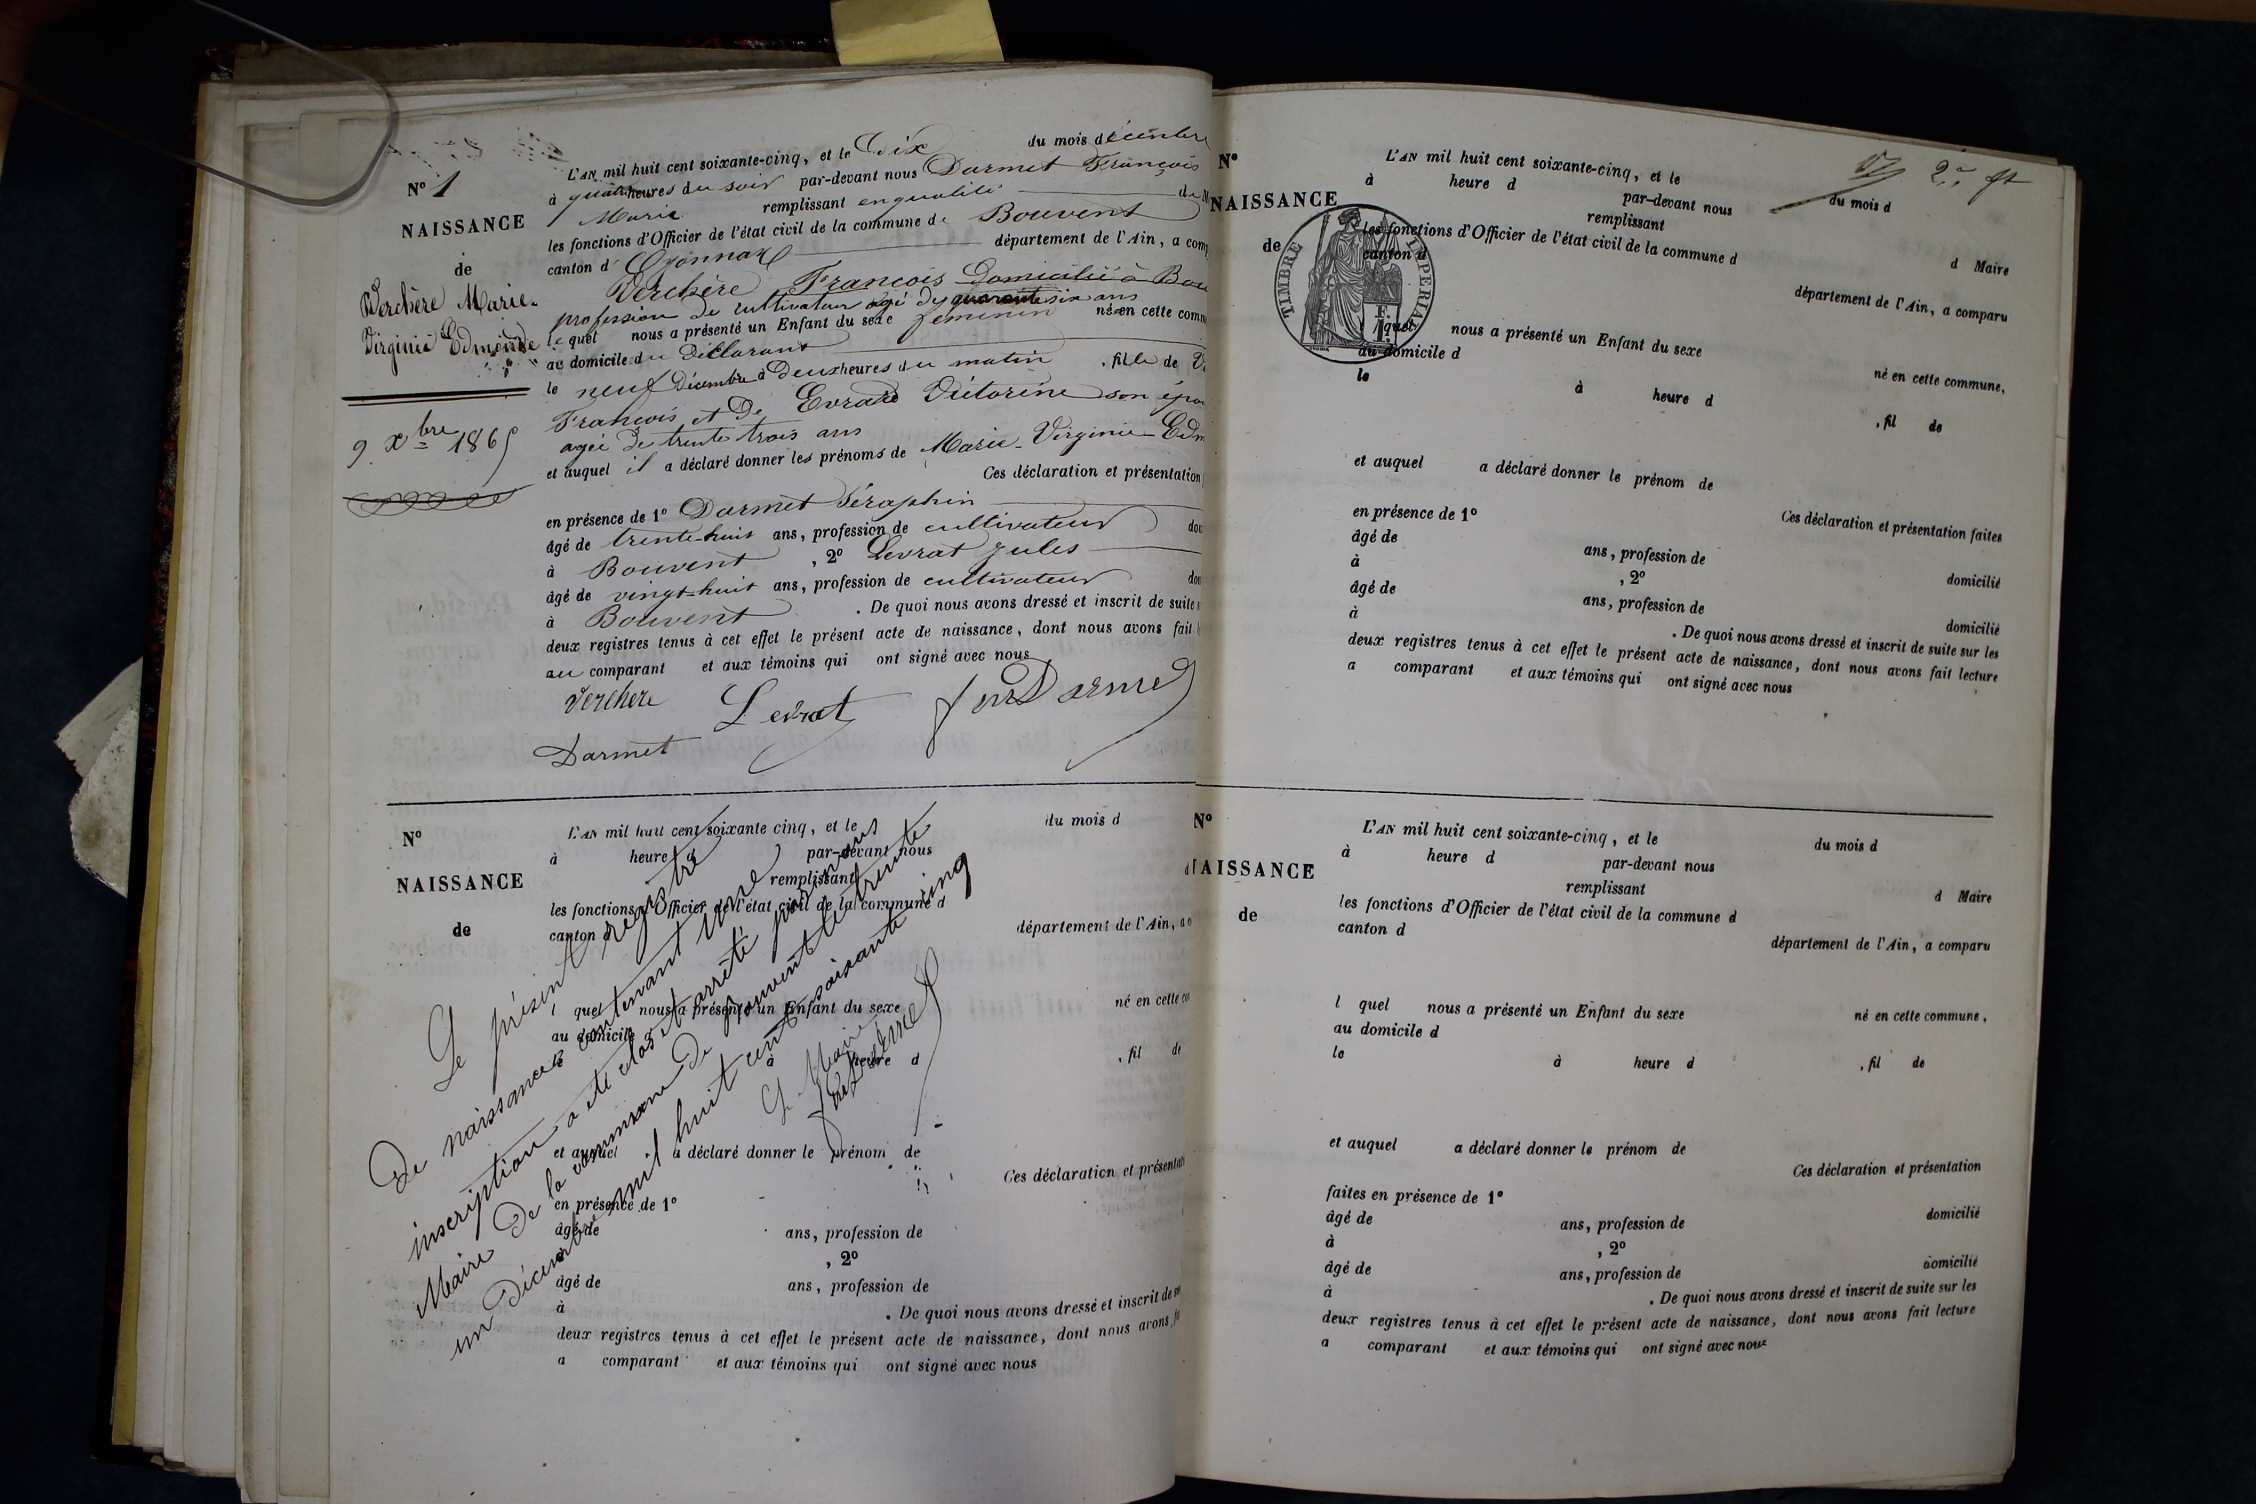 L'AN mil huit cent soixante-cinq, et le Dix du mois décembre
N° 1
à quatre heures du soir par-devant nous Darmet François
Marie remplissant en qualité de M
NAISSANCE
les fonctions d'Officier de l'état civil de la commune de Bouvent
de
canton d'Oyonnax département de l'Ain, a com
Verchère Marie-
Virginie Edmonde
Verchère François Domicilié à Bou
profession de cultivateur agé de quarante six ans
le quel nous a présenté un Enfant du sexe feminin né en cette comm
au domicile du Déclarant
le neuf Décembre à Deux heures du matin, fille de V
François et De Evrard Victorine son épou
agée de trente trois ans
9 Xbre 1865
et auquel il a déclaré donner les prénoms de Marie-Virginie-Edm
Ces déclaration et présentation
en présence de 1° Darmet Séraphin
âgé de trente-huit ans, profession de cultivateur dom
à Bouvent, 2° Levrat Jules
âgé de vingt-huit ans, profession de cultivateur dom
à Bouvent. De quoi nous avons dressé et inscrit de suite s
deux registres tenus à cet effet le présent acte de naissance, dont nous avons fait l
au comparant et aux témoins qui ont signé avec nous
Verchere Levrat Darmet
Darmet
N°
L'AN mil huit cent soixante cinq, et le du mois d
à heure d par-devant nous
remplissant d
NAISSANCE
les fonctions d'Officier de l'état civil de la commune d
de
canton d département de l'Ain, a c
l quel nous a présenté un Enfant du sexe né en cette co
au domicile
le à heure d, fil de
et auquel a déclaré donner le prénom de
Ces déclaration et présentati
en présence de 1°
âgé de ans, profession de
à, 2°
âgé de ans, profession de
à. De quoi nous avons dressé et inscrit de su
deux registres tenus à cet effet le présent acte de naissance, dont nous avons f
a comparant et aux témoins qui ont signé avec nous
Le présent registre
De naissances contenant une
inscription a été clos et arrêté par nous
Maire De la commune De Bouvent le trente
un Décembre mil huit cent soixante cinq
Le Maire
Darmet
2e ft
N°
L'AN mil huit cent soixante-cinq, et le du mois d
à heure d par-devant nous
remplissant d Maire
NAISSANCE
les fonctions d'Officier de l'état civil de la commune d
de
canton d département de l'Ain, a comparu
TIMBRE IMPERIAL
l quel nous a présenté un Enfant du sexe né en cette commune,
au domicile d
le à heure d, fil de
et auquel a déclaré donner le prénom de
Ces déclaration et présentation faites
en présence de 1°
âgé de ans, profession de domicilié
à, 2°
âgé de ans, profession de domicilié
à. De quoi nous avons dressé et inscrit de suite sur les
deux registres tenus à cet effet le présent acte de naissance, dont nous avons fait lecture
a comparant et aux témoins qui ont signé avec nous
N°
L'AN mil huit cent soixante-cinq, et le du mois d
à heure d par-devant nous
remplissant d Maire
NAISSANCE
les fonctions d'Officier de l'état civil de la commune d
de
canton d département de l'Ain, a comparu
l quel nous a présenté un Enfant du sexe né en cette commune,
au domicile d
le à heure d, fil de
et auquel a déclaré donner le prénom de
Ces déclaration et présentation
faites en présence de 1°
âgé de ans, profession de domicilié
à, 2°
âgé de ans, profession de domicilié
à. De quoi nous avons dressé et inscrit de suite sur les
deux registres tenus à cet effet le présent acte de naissance, dont nous avons fait lecture
a comparant et aux témoins qui ont signé avec nous